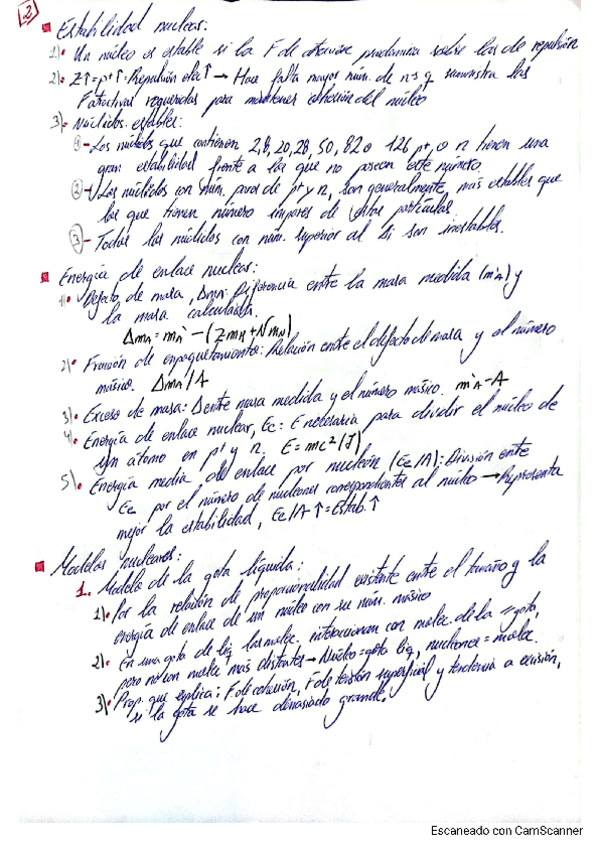 2)
Estabilidad nuclear:
1)• Un núcleo es estable si la F de atracción predomina sobre las de repulsión
2)• Z↑=p+↑: Repulsión elé↑ → Hace falta mayor núm. de n s q suministra las
F atractivas requeridas para mantener cohesión del núcleo
3)• Núclidos estables:
1- Los núclidos que contienen 2,8,20,28,50,82 o 126 p+, o n tienen una
gran estabilidad frente a los que no poseen este número.
2- Los núclidos con núm. pares de p+ y n, son generalmente, más estables que
los que tienen número impares de estas partículas.
3- Todos los núclidos con núm. superior al Bi son inestables.
Energía de enlace nuclear:
1)• Defecto de masa, Δmₐ: Diferencia entre la masa medida (m'ₐ) y
la masa calculada.
Δmₐ = mₐ' - (Z mH + N mN)
2)• Fracción de empaquetamiento: Relación entre el defecto de masa y el número
másico. Δmₐ/A
3)• Exceso de masa: Δ entre masa medida y el número másico. m'ₐ-A
4)• Energía de enlace nuclear, Ec: E necesaria para dividir el núcleo de
un átomo en p+ y n. E=mc² (J)
5)• Energía media de enlace por nucleón (Ee/A): División entre
Ee por el número de nucleones correspondientes al núcleo → Representa
mejor la estabilidad, Ee/A↑ = Estab.↑
Modelos nucleares:
1. Modelo de la gota líquida:
1)• Por la relación de proporcionalidad existente entre el tamaño y la
energía de enlace de un núcleo con su núm. másico
2)• En una gota de líq. las molec. interaccionan con molec. de la = gota,
pero no con molec más distantes → Núcleo = gota líq, nucleones = molec.
3)• Prop. que explica: F de cohesión, F de tensión superficial y tendencia a escisión,
si la gota se hace demasiado grande.
Escaneado con CamScanner